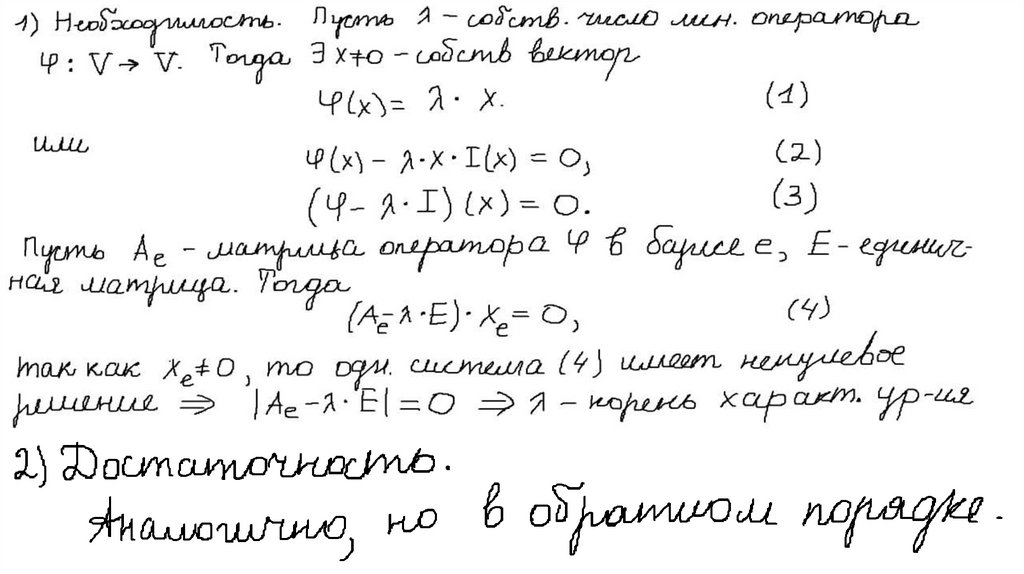 1) Необходимость. Пусть λ – собств. число лин. оператора
φ : V → V. Тогда ∃ x≠0 – собств вектор
φ(x) = λ · x. (1)
или φ(x) – λ·x·I(x) = 0, (2)
(φ – λ·I)(x) = 0. (3)
Пусть Aₑ – матрица оператора φ в базисе e, E – единич-
ная матрица. Тогда
(Aₑ – λ·E)·xₑ = 0, (4)
так как xₑ≠0, то одн. система (4) имеет ненулевое
решение ⇒ |Aₑ – λ·E| = 0 ⇒ λ – корень характ. ур-ия
2) Достаточность.
Аналогично, но в обратном порядке.